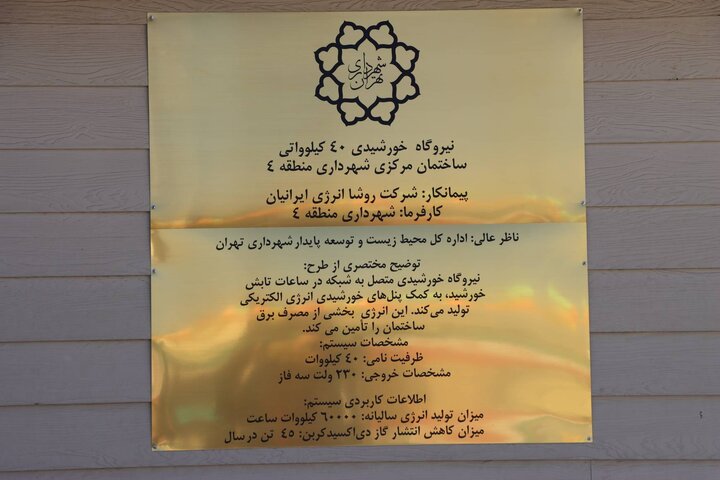 شهرداری تهران
نیروگاه خورشیدی ٤٠ کیلوواتی
ساختمان مرکزی شهرداری منطقه ٤
پیمانکار: شرکت روشا انرژی ایرانیان
کارفرما: شهرداری منطقه ٤
ناظر عالی: اداره کل محیط زیست و توسعه پایدار شهرداری تهران
توضیح مختصری از طرح:
نیروگاه خورشیدی متصل به شبکه در ساعات تابش
خورشید، به کمک پنل‌های خورشیدی انرژی الکتریکی
تولید می‌کند. این انرژی بخشی از مصرف برق
ساختمان را تأمین می کند.
مشخصات سیستم:
ظرفیت نامی: ٤٠ کیلووات
مشخصات خروجی: ٢٣٠ ولت سه فاز
اطلاعات کاربردی سیستم:
میزان تولید انرژی سالیانه: ٦٠٠٠٠ کیلووات ساعت
میزان کاهش انتشار گاز دی‌اکسیدکربن: ٤٥ تن در سال